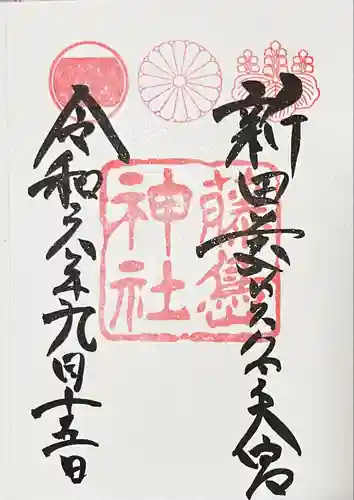 新田義貞公大宮
藤島
神社
令和六年九月十五日